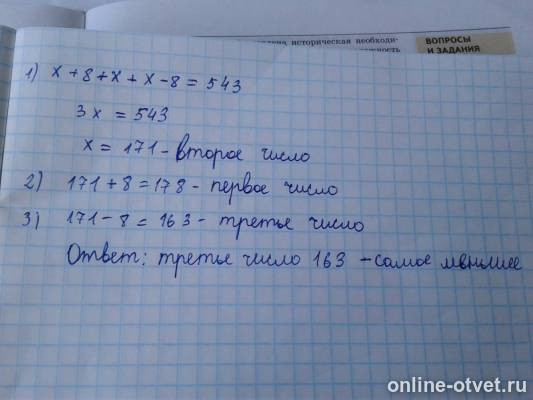 лена историческая необходи-
ВОПРОСЫ
И ЗАДАНИЯ
1) x + 8 + x + x - 8 = 543
3x = 543
x = 171 - второе число
2) 171 + 8 = 178 - первое число
3) 171 - 8 = 163 - третье число
Ответ: третье число 163 - самое меньшее
online-otvet.ru